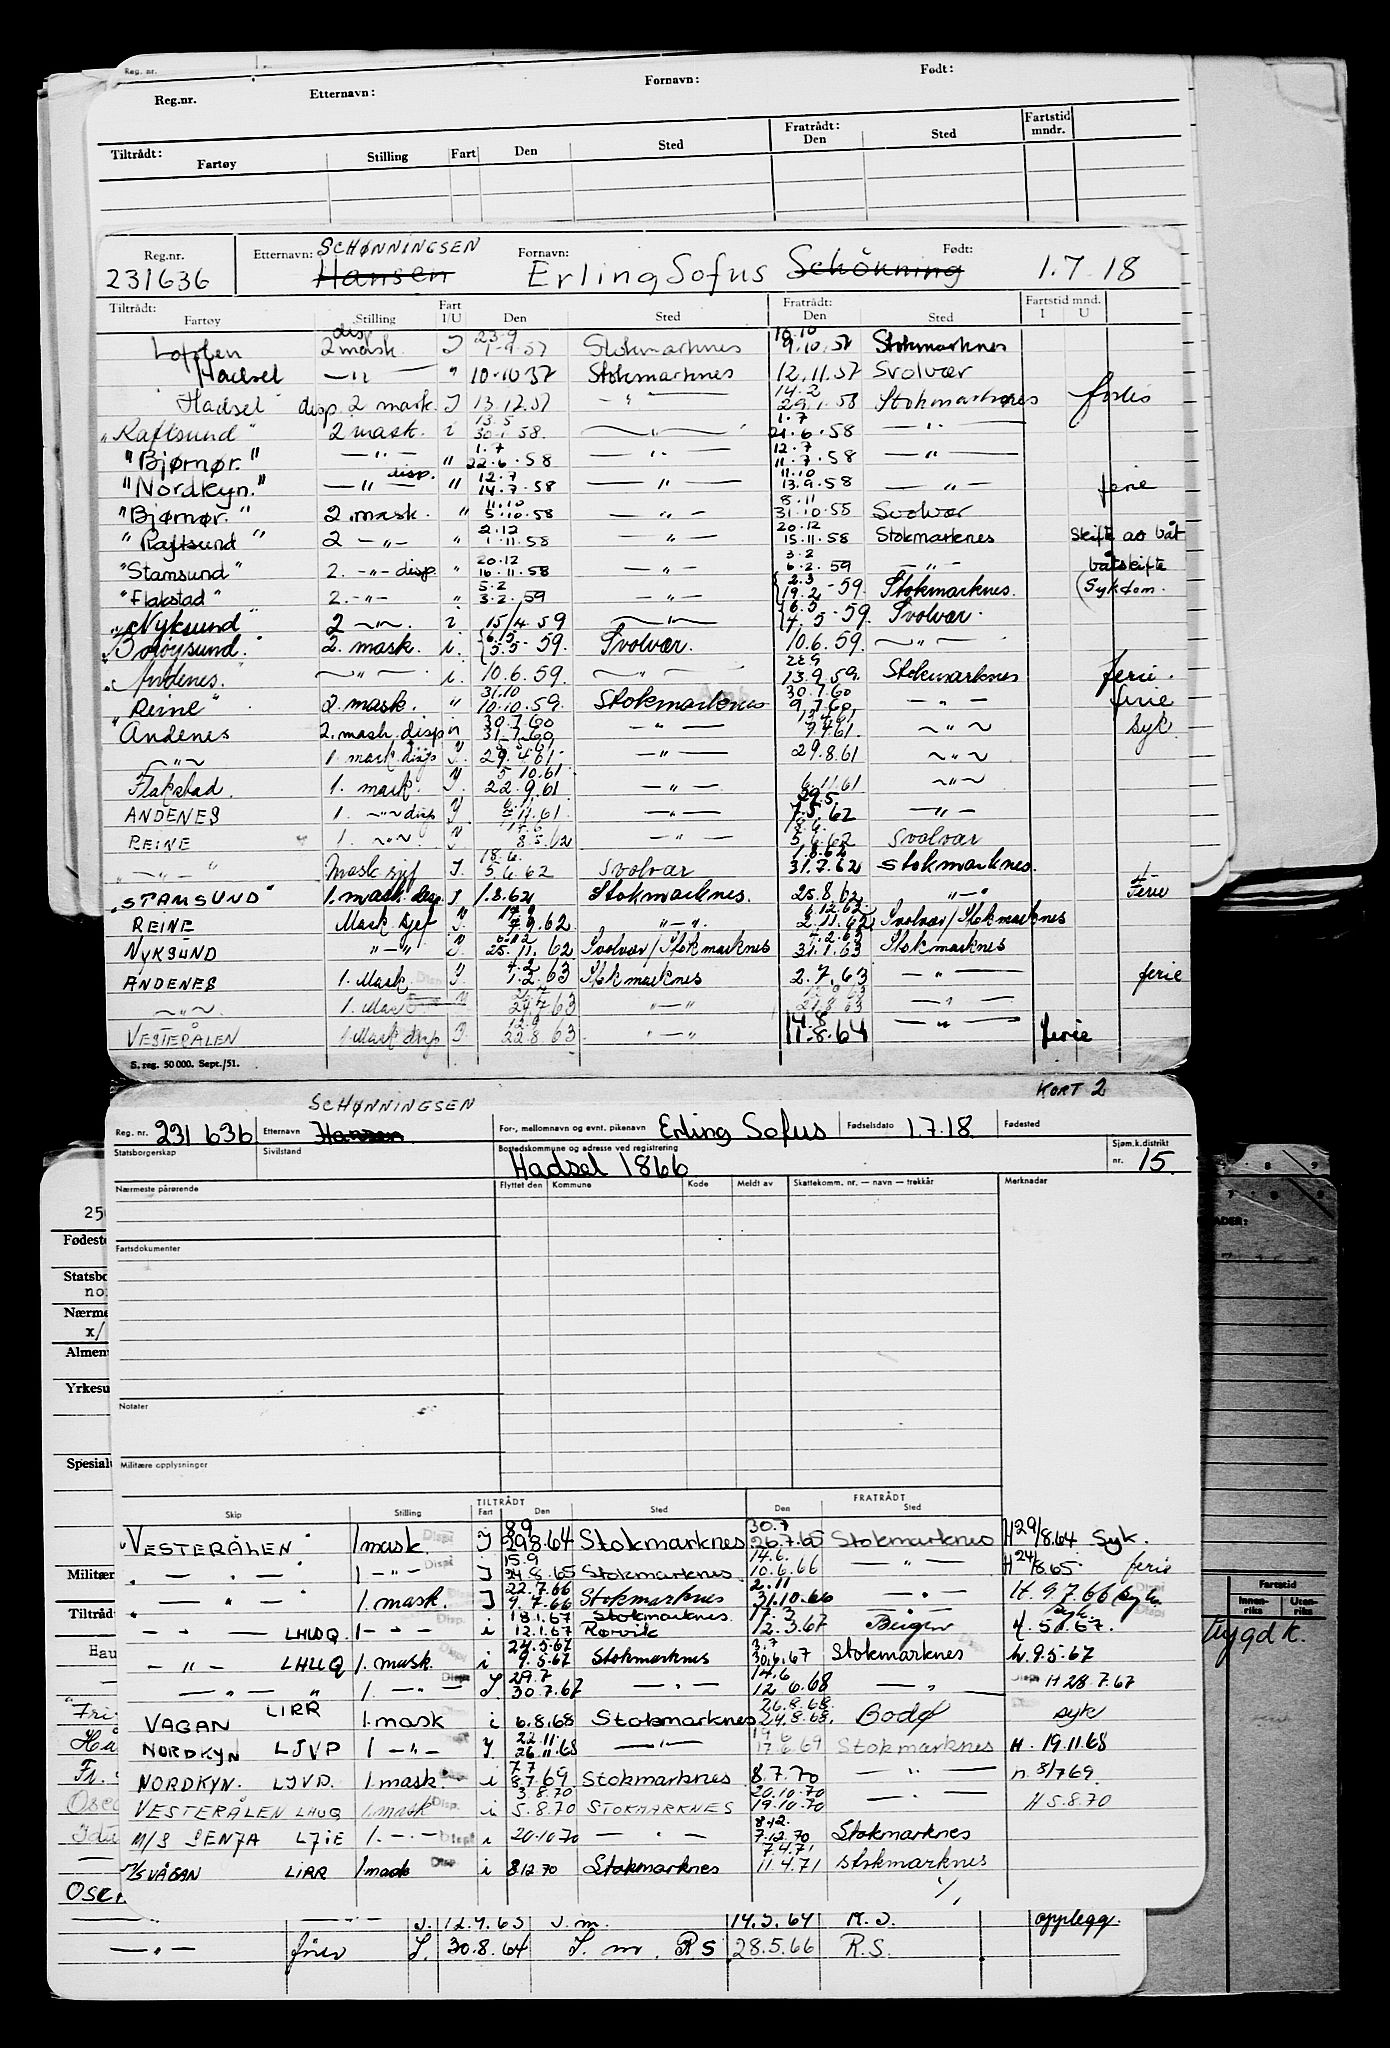 Reg. nr.
Reg.nr. Etternavn: Fornavn: Født:
Tiltrådt: Fartøy Stilling Fart Den Sted Fratrådt: Den Sted Fartstid mndr.
Reg.nr. 231636 Etternavn: SCHØNNINGSEN Hansen Fornavn: Erling Sofus Schönning Født: 1.7 18
Tiltrådt: Fartøy Stilling Fart I/U Den Sted Fratrådt: Den Sted Fartstid mnd. I U
Lofoten disp 2 mask. I 23.9 1-9.57 Stokmarknes 10.10 9.10.57 Stokmarknes
Hadsel —"— " 10.10 57 Stokmarknes 12.11.57 Svolvær
Hadsel disp. 2 mask. I 13.12.57 —"— 14.2 29.1.58 Stokmarknes ferie
"Raftsund" 2 mask. i 13.5 30.1.58. —"— 1.7 21.6.58 —"—
"Bjørnør." —"— " 1.7 22.6.58 —"— 12.7 11.7.58 —"—
"Nordkyn." —"— disp. " 12.7 14.7.58 —"— 11.10 13.9.58 —"— ferie
"Bjørnør." 2. mask. " 11.10 5.10.58 —"— 8.11 31.10.58 Svolvær
"Raftsund" 2 —"— " 2.12 1.11.58 —"— 20.12 15.11.58 Stokmarknes Skifte av båt
"Stamsund" 2. —"— disp. " 20.12 16.11.58 —"— 3.2 6.2.59 —"— båtskifte
"Flakstad" 2. —"— " 5.2 3.2.59 —"— 2.3 19.2-59. Stokmarknes. (Sykdom.
"Nyksund" 2 —"—. i 15/4 59 —"— 6.5 4.5-59. Svolvær.
"Borøysund." 2. mask. i. 6.5 5.5-59. Svolvær. 10.6.59. —"—
"Andenes. —"— i. 10.6.59. —"— 13.9.59. Stokmarknes ferie.
"Reine" 2. mask. " 31.10 10.10.59. Stokmarknes 30.7.60 9.7.60. —"— ferie
"Andenes 2. mask. disp " 30.7.60 31.7.60 —"— 13.4.61 7.4.61. —"— syk.
—"— 1. mask disp I. 29.4.61 —"— 29.8.61 —"—
Flakstad. 1. mask. I. 5.10.61 22.9.61 —"— 6.11.61 —"—
ANDENES 1. —"— disp —"— 29.5. 7.5.62 —"—
REINE 1. —"—. 8.5.62 —"— 18.6. 5.6.62 Svolvær
—"— Mask sjef I. 18.6. 5.6.62 Svolvær 1.8.62 31.7.62 Stokmarknes.
"STAMSUND" 1. mask. disp. I 1.8.62 Stokmarknes. 25.8.62 "—" Ferie
REINE Mask sjef I. 7.9.62 "—". 6.12.62 2.11.62 Svolvær/Stokmarknes
NYKSUND "—" I. 6.12 25.11.62 Svolvær/Stokmarknes 4.2.63 31.1.63 Stokmarknes
ANDENES 1. Mask Disp I. 4.2 1.2.63 Stokmarknes 2.7.63 —"— ferie
—"—. 1. Mask 24.7.63 "—" 21.8.63 —"—
VESTERÅLEN 1. Mask disp I. 12.9 22.8.63. "—" 14.8 11.8.64 —"— ferie
S. reg. 50 000. Sept./51.
KORT 2
Reg. nr. 231 636 Etternavn SCHØNNINGSEN Hansen For-, mellomnavn og evnt. pikenavn Erling Sofus Fødselsdato 1.7.18 Fødested
Statsborgerskap Sivilstand Bostedskommune og adresse ved registrering Hadsel 1866 Sjøm.k.distrikt nr. 15
Nærmeste pårørende Flyttet den Kommune Kode Meldt av Skattekomm. nr. — navn — trekkår Merknadar
Fartsdokumenter
Notater
Militære opplysninger
Skip Stilling TILTRÅDT Fart Den Sted FRATRÅDT Den Sted
"VESTERÅLEN" 1 mask. Disp I 8.9 29.8.64 Stokmarknes 30.7 26.7.65 Stokmarknes H 29/8.64 Syk.
—"— 1 —"— Disp I 15.9 24.8.65 Stokmarknes. 14.6. 10.6.66 —"— H 24/8.65 ferie
—"— 1. mask. I 22.7.66 9.7.66 Stokmarknes 2.11 31.10.66 —"— H. 9.7.66 syk.
—"— LHUQ. 1—"— Disp. i 18.1.67 12.1.67 Stokmarknes. Rørvik 12.3.67 Bergen syk. H. 5.1.67.
—"— LHUQ 1. mask. i 24.5.67 9.5.67 Stokmarknes 3.7 30.6.67 Stokmarknes h. 9.5.67
—"— " 1. —"— Disp I. 29.7 30.7.67 —"— 14.6 12.6.68 —"— H 28.7.67
VAGAN LIRR 1. mask i 6.8.68 Stokmarknes 26.8.68. 24.8.68. Bodø syk
NORDKYN LJVP 1 —"— I. 22.11. 26.11.68 —"— 17.6.69 Stokmarknes H. 19.11.68
NORDKYN. LJVP. 1. mask. i 7.7 8.7.69 Stokmarknes 8.7.70 —"— h. 8/7 69.
VESTERÅLEN LHUQ 1. mask Disp. i 3.8.70 5.8.70 STOKMARKNES 20.10.70 19.10.70 —"— H 5.8.70
M/S SENJA LJIE 1. —"— Disp i 20.10 70 —"— 8.12. 7.12.70 Stokmarknes
M/S VÅGAN LIRR 1 mask Disp i 8 12 70 Stokmarknes 7.4.71 11.4.71 stokmarknes
Fødeste
Statsbo
no
Nærme
x/
Almen
Yrkesu
Spesialu
Militær
Tiltråd
Hau
Osc
—"— —"— J. 12.9.63 J.m. 14.5.64 R.S. opplegg.
—"— fører J. 30.8.64 J. m. RS 28.5.66 R.S.
Fartstid
Innen-riks Uten-riks
trygd k.